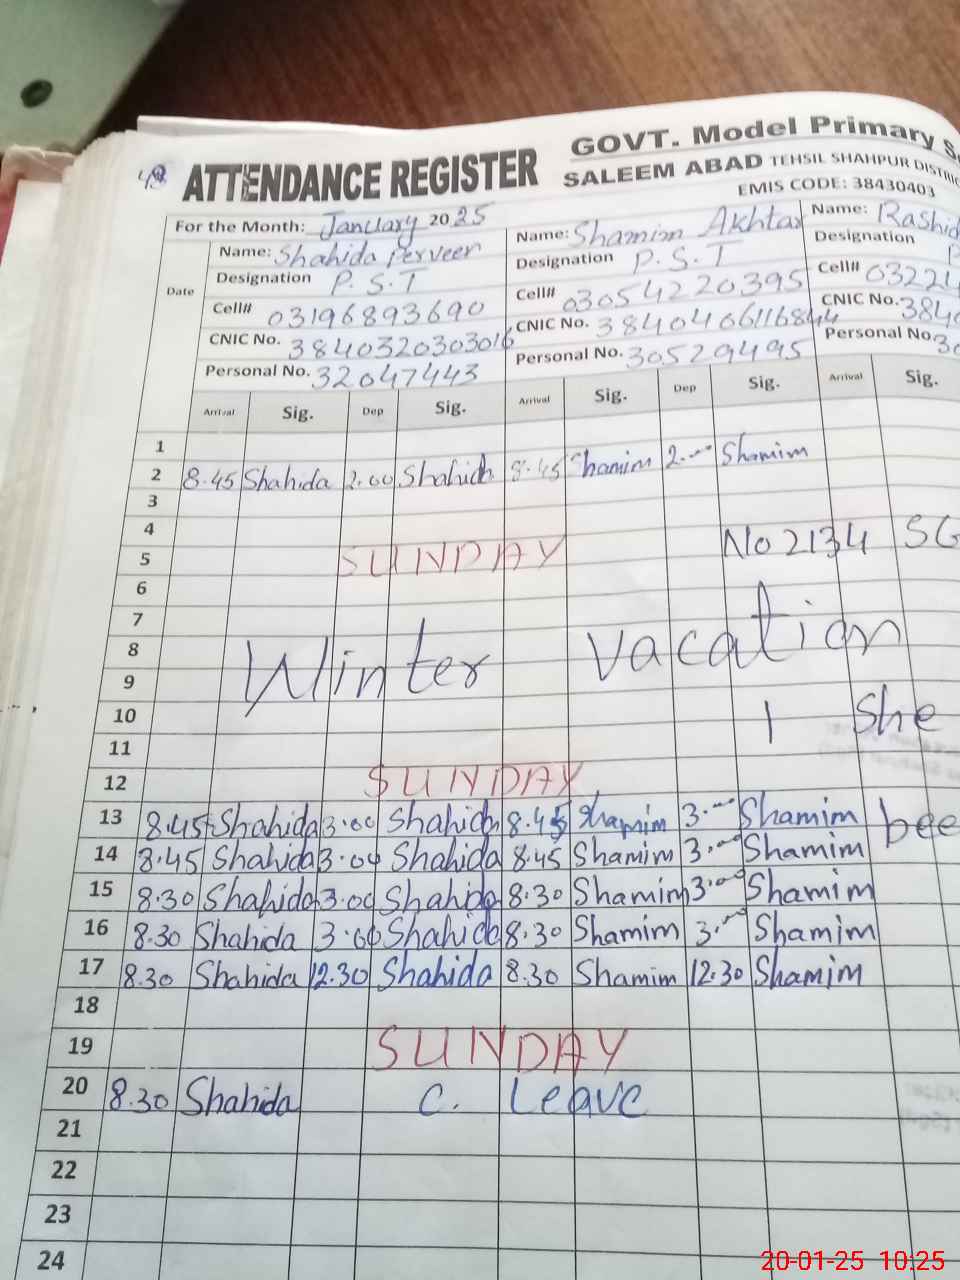 48
ATTENDANCE REGISTER
GOVT. Model Primary
SALEEM ABAD TEHSIL SHAHPUR
EMIS CODE: 38430403
For the Month: January 2025
Date
Name: Shahida Perveen Name: Shamim Akhtar Name:
Designation P.S.T Designation P.S.T Designation
Cell# 03196893690 Cell# 03054220395 Cell# 03224
CNIC No. 3840320303016 CNIC No. 3840406116844 CNIC No. 384
Personal No. 32047443 Personal No. 30529495 Personal No. 30
Arrival Sig. Dep Sig. Arrival Sig. Dep Sig. Arrival Sig.
1
2 8.45 Shahida 2.00 Shahida 8.45 Shamim 2.-- Shamim
3
4 No 2134 SG
5 SUNDAY
6
7
8 Winter vacation
9
10 1 She
11
12 SUNDAY
13 8.45 Shahida 3.00 Shahida 8.45 Shamim 3.-- Shamim bee
14 8.45 Shahida 3.00 Shahida 8.45 Shamim 3.00 Shamim
15 8.30 Shahida 3.00 Shahida 8.30 Shamim 3.00 Shamim
16 8.30 Shahida 3.00 Shahida 8.30 Shamim 3.00 Shamim
17 8.30 Shahida 12.30 Shahida 8.30 Shamim 12.30 Shamim
18
19 SUNDAY
20 8.30 Shahida C. Leave
21
22
23
24
20-01-25 10:25